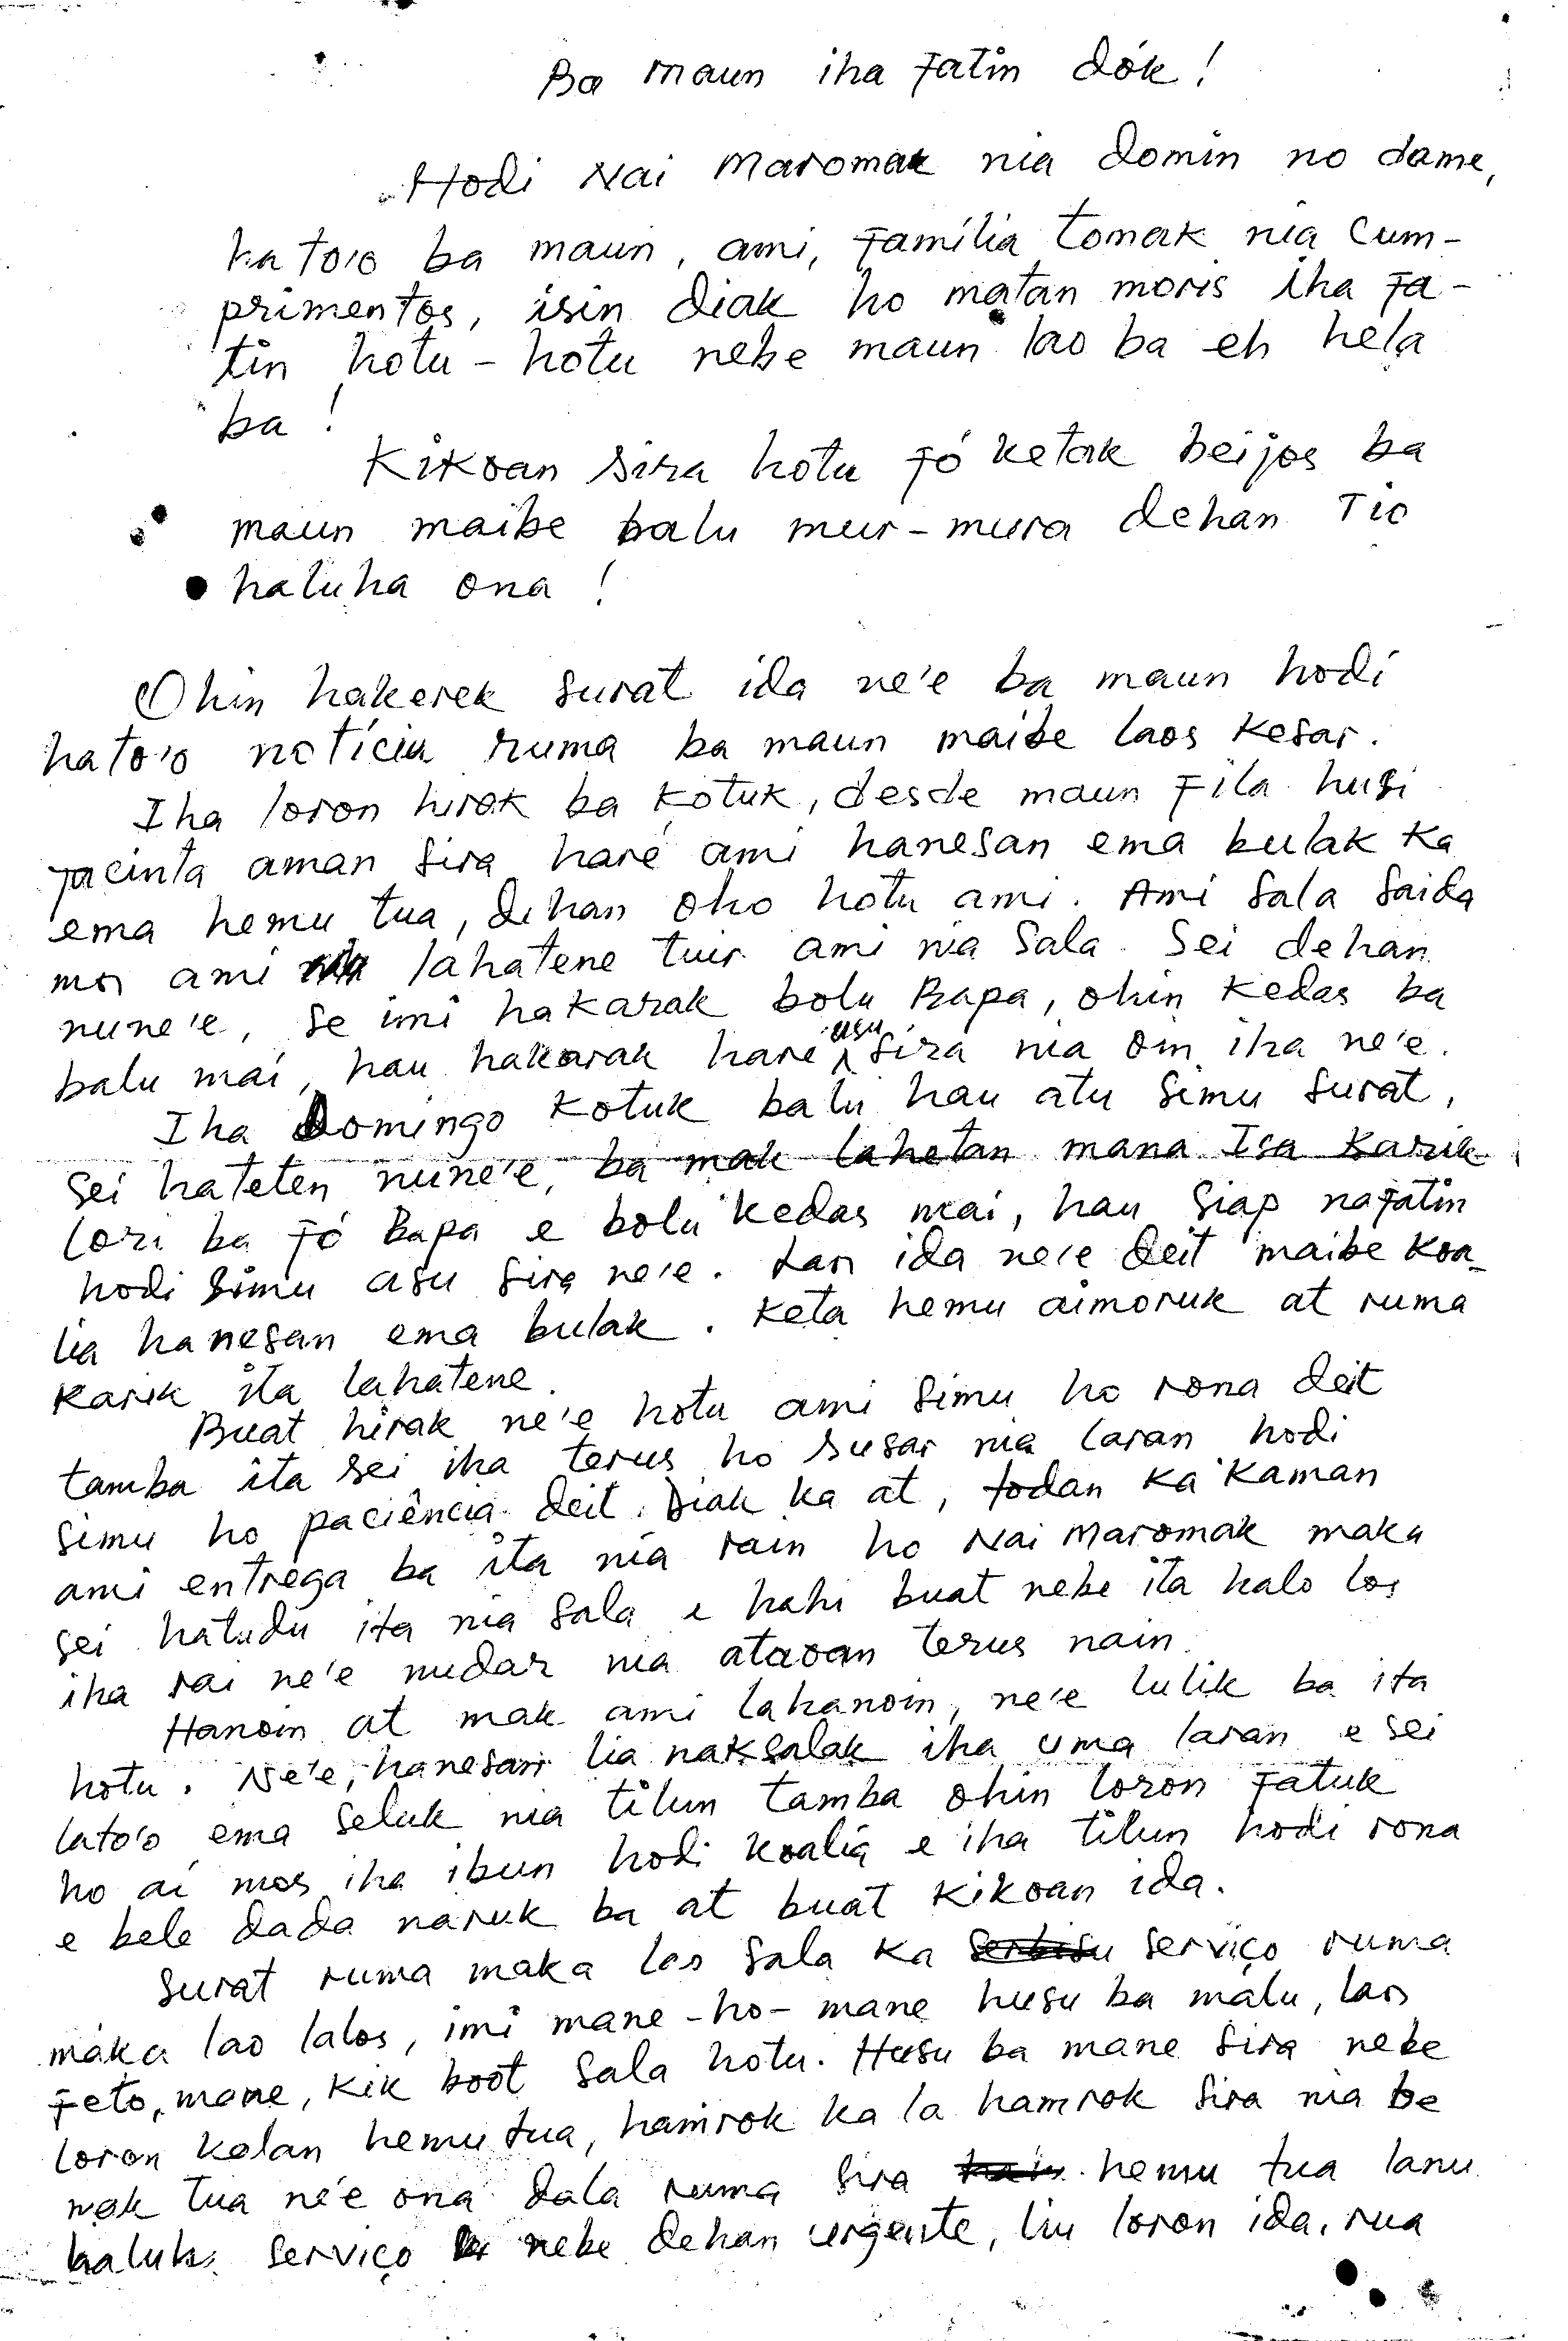 Ba maun iha fatin dók !
Hodi Nai Maromak nia domin no dame,
hato'o ba maun, ami, família tomak nia cum-
primentos, isin diak ho matan moris iha fa-
tin hotu - hotu nebe maun lao ba eh hela
ba !
Kikoan sira hotu fó ketak beijos ba
maun maibe balu mur-mura dehan Tio
haluha ona !
Ohin hakerek surat ida ne'e ba maun hodi
hato'o notícia ruma ba maun maibe laos kesar.
Iha loron hirak ba kotuk, desde maun fila husi
Jacinta aman sira haré ami hanesan ema bulak ka
ema hemu tua, dehan oho hotu ami. Ami sala saida
mos ami lahatene tuir ami nia sala. Sei dehan
nune'e, se imi hakarak bolu Bapa, ohin kedas ba
balu mai, hau hakarak hare asu sira nia oin iha ne'e.
Iha Domingo kotuk balu hau atu simu surat,
sei hateten nune'e, ba mak lahetan mana Isa karik
lori ba fó Bapa e bolu kedas mai, hau siap nafatin
hodi simu asu sira ne'e. Lan ida ne'e deit maibe koa-
lia hanesan ema bulak. Keta hemu aimoruk at ruma
karik ita lahatene.
Buat hirak ne'e hotu ami simu ho rona deit
tamba ita sei iha terus ho susar nia laran hodi
simu ho paciência deit. Diak ka at, todan ka kaman
ami entrega ba ita nia rain ho Nai Maromak maka
sei hatudu ita nia sala e hahi buat nebe ita halo los
iha rai ne'e nudar nia ataoan terus nain.
Hanoin at mak ami lahanoin, ne'e lulik ba ita
hotu. Ne'e, hanesan lia naksalak iha uma laran e sei
lato'o ema seluk nia tilun tamba ohin loron fatuk
ho ai mos iha ibun hodi koalia e iha tilun hodi rona
e bele dada naruk ba at buat kikoan ida.
Surat ruma maka los sala ka serbisu serviço ruma
maka lao lalos, imi mane - ho - mane husu ba malu, laos
feto, mane, kik boot sala hotu. Husu ba mane sira nebe
loron kalan hemu tua, hamrok ka la hamrok sira nia be
mak tua ne'e ona dala ruma sira hemu tua lanu
haluha serviço nebe dehan urgente, liu loron ida, rua